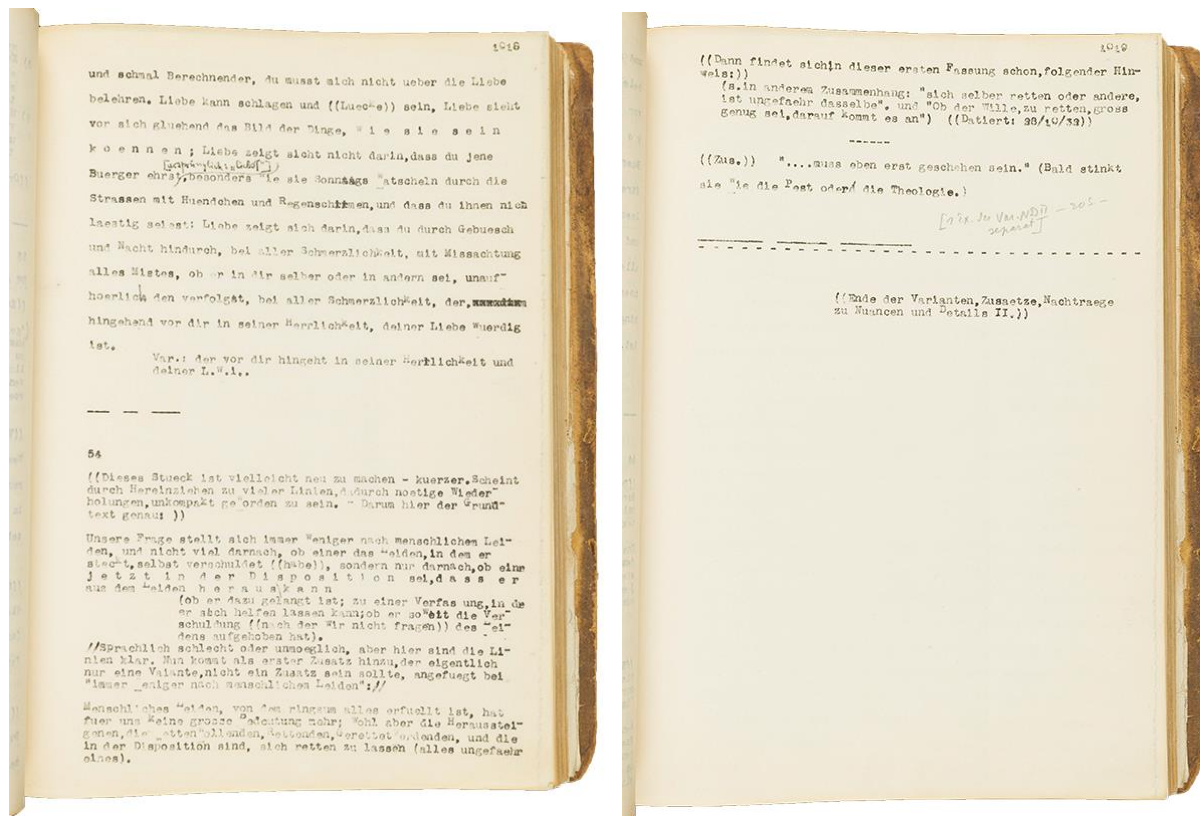 1018
und schmal Berechnender, du musst mich nicht ueber die Liebe
belehren. Liebe kann schlagen und ((Luecke)) sein, Liebe sieht
vor sich gluehend das Bild der Dinge, w i e s i e s e i n
k o e n n e n ; Liebe zeigt sicht nicht darin,dass du jene
Buerger ehrst,besonders wie sie Sonntags watscheln durch die
Strassen mit Huendchen und Regenschirmen,und dass du ihnen nich
laestig seiest: Liebe zeigt sich darin,dass du durch Gebuesch
und Nacht hindurch, bei aller Schmerzlichkeit, mit Missachtung
alles Mistes, ob er in dir selber oder in andern sei, unauf-
hoerlich den verfolgst, bei aller Schmerzlichkeit, der,
hingehend vor dir in seiner Herrlichkeit, deiner Liebe wuerdig
ist.
Var.: der vor dir hingeht in seiner Herrlichkeit und
deiner L.W.i..
54
((Dieses Stueck ist vielleicht neu zu machen - kuerzer.Scheint
durch Hereinziehen zu vieler Linien,dadurch noetige Wieder-
holungen,unkompakt geworden zu sein. - Darum hier der Grund-
text genau: ))
Unsere Frage stellt sich immer weniger nach menschlichem Lei-
den, und nicht viel darnach, ob einer das Leiden,in dem er
steckt,selbst verschuldet ((habe)), sondern nur darnach,ob einr
j e t z t i n d e r D i s p o s i t i o n sei,d a s s e r
aus dem Leiden h e r a u s k a n n
(ob er dazu gelangt ist; zu einer Verfas ung,in dr
er sich helfen lassen kann;ob er soweit die Ver-
schuldung ((nach der wir nicht fragen)) des Lei-
dens aufgehoben hat).
//Sprachlich schlecht oder unmoeglich, aber hier sind die Li-
nien klar. Nun kommt als erster Zusatz hinzu,der eigentlich
nur eine Vaiante,nicht ein Zusatz sein sollte, angefuegt bei
"immer weniger nach menschlichem Leiden":://
Menschliches Leiden, von dem ringsum alles erfuellt ist, hat
fuer uns keine grosse Bedeutung mehr; Wohl aber die Heraustei-
genen,die Rettenwollenden,Rettenden,Gerettetwerdenden, und die
in der Disposition sind, sich retten zu lassen (alles ungefaehr
eines).
1019
((Dann findet sichin dieser ersten Fassung schon,folgender Hin-
weis:))
(s.in anderem Zusammenhang: "sich selber retten oder andere,
ist ungefaehr dasselbe". und "Ob der Wille,zu retten,gross
genug sei,darauf kommt es an") ((Datiert: 28/10/32))
------
((Zus.)) "....muss eben erst geschehen sein." (Bald stinkt
sie wie die Pest oder die Theologie.)
[1 Ex. der Var. NDII - 205 -
separat]
((Ende der Varianten,Zusaetze,Nachtraege
zu Nuancen und Details II.))